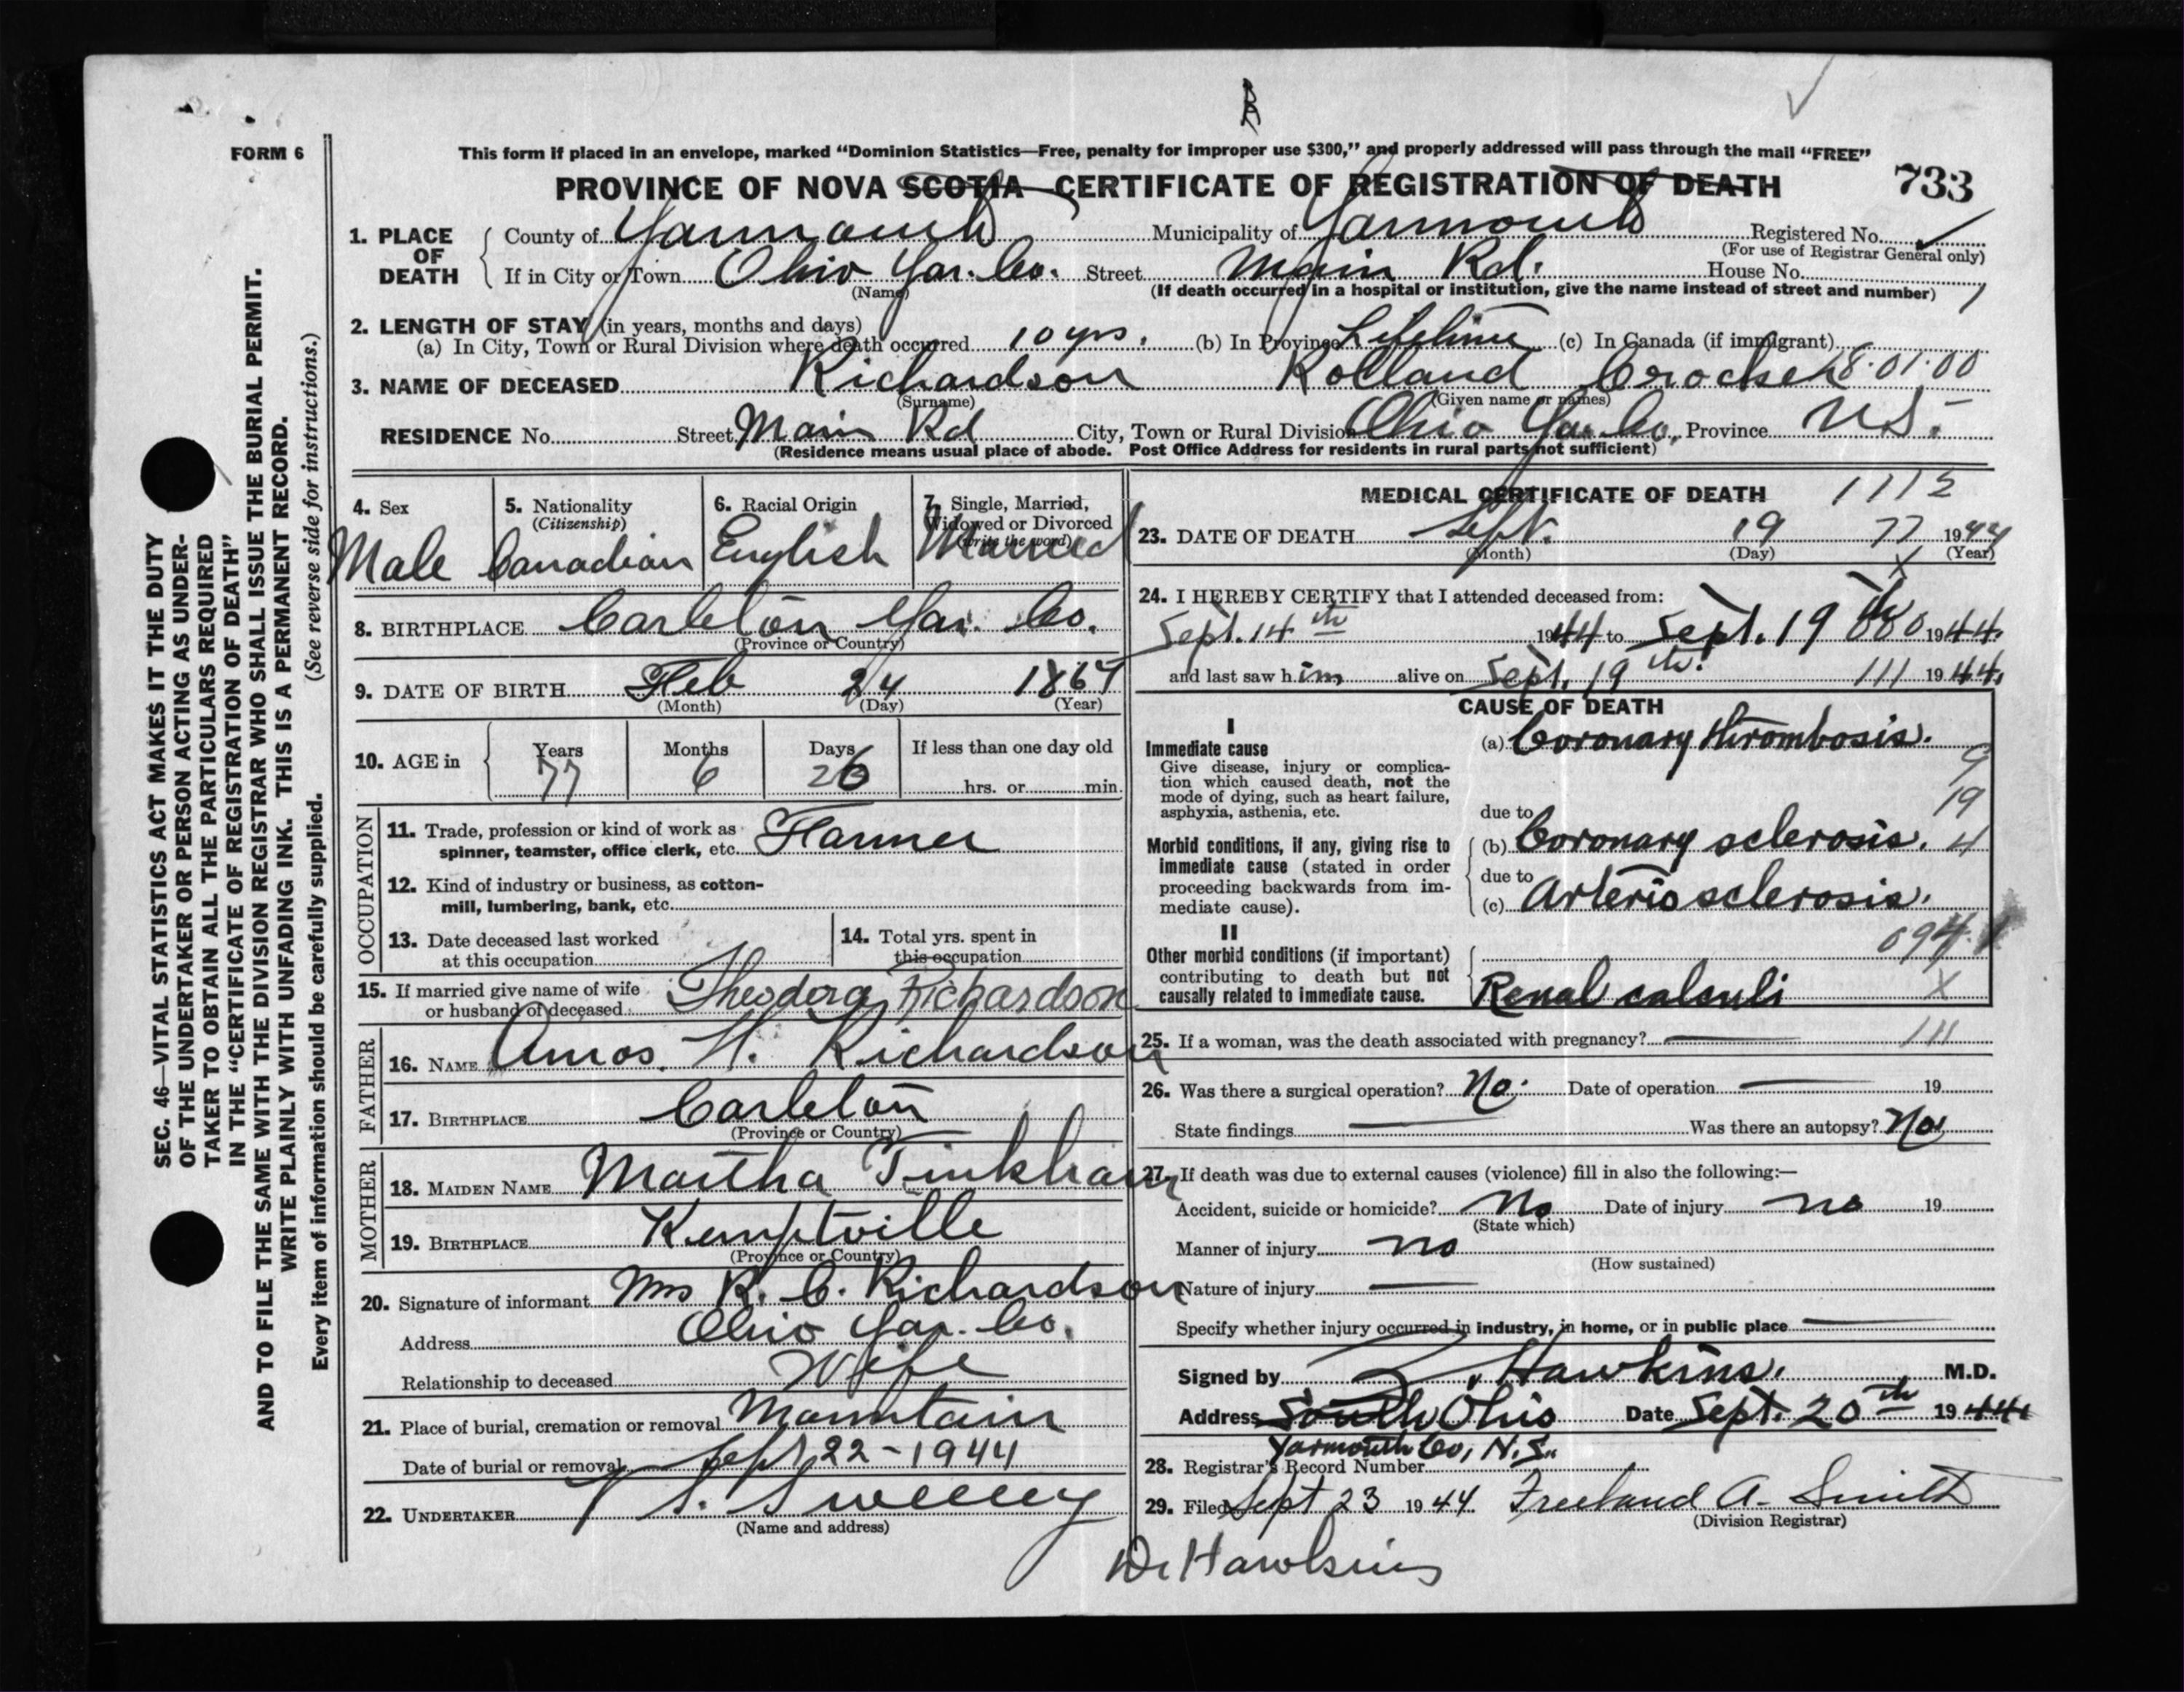 FORM 6
This form if placed in an envelope, marked “Dominion Statistics—Free, penalty for improper use $300,” and properly addressed will pass through the mail “FREE”
PROVINCE OF NOVA SCOTIA CERTIFICATE OF REGISTRATION OF DEATH 733
1. PLACE OF DEATH County of Yarmouth Municipality of Yarmouth Registered No.
(For use of Registrar General only)
If in City or Town Ohio Yar. Co. Street Main Rd. House No.
(Name) (If death occurred in a hospital or institution, give the name instead of street and number)
2. LENGTH OF STAY (in years, months and days)
(a) In City, Town or Rural Division where death occurred 10 yrs. (b) In Province Lifetime (c) In Canada (if immigrant)
3. NAME OF DECEASED Richardson Rolland Crocker 8.01.00
(Surname) (Given name or names)
RESIDENCE No. Street Main Rd City, Town or Rural Division Ohio Yar. Co. Province N.S.
(Residence means usual place of abode. Post Office Address for residents in rural parts not sufficient)
4. Sex 5. Nationality (Citizenship) 6. Racial Origin 7. Single, Married, Widowed or Divorced (write the word)
Male Canadian English Married
8. BIRTHPLACE Carleton Yar. Co.
(Province or Country)
9. DATE OF BIRTH Feb 24 1867
(Month) (Day) (Year)
10. AGE in Years Months Days If less than one day old
77 6 26 hrs. or min.
OCCUPATION
11. Trade, profession or kind of work as spinner, teamster, office clerk, etc. Farmer
12. Kind of industry or business, as cotton-
mill, lumbering, bank, etc.
13. Date deceased last worked at this occupation
14. Total yrs. spent in this occupation
15. If married give name of wife or husband of deceased Theodora Richardson
FATHER
16. NAME Amos. H. Richardson
17. BIRTHPLACE Carleton
(Province or Country)
MOTHER
18. MAIDEN NAME Martha Tinkham
19. BIRTHPLACE Kemptville
(Province or Country)
20. Signature of informant Mrs R. C. Richardson
Address Ohio Yar. Co.
Relationship to deceased Wife
21. Place of burial, cremation or removal Mountain
Date of burial or removal Sept 22-1944
22. UNDERTAKER S. Sweeney
(Name and address)
MEDICAL CERTIFICATE OF DEATH 1112
23. DATE OF DEATH Sept. 19 77 1944
(Month) (Day) (Year)
24. I HEREBY CERTIFY that I attended deceased from:
Sept. 14th 1944 to Sept. 19th 1944
and last saw him alive on Sept. 19th. 111 1944
CAUSE OF DEATH
I
Immediate cause
Give disease, injury or complica-
tion which caused death, not the
mode of dying, such as heart failure,
asphyxia, asthenia, etc.
(a) Coronary thrombosis.
9
19
due to
Morbid conditions, if any, giving rise to
immediate cause (stated in order
proceeding backwards from im-
mediate cause).
(b) Coronary sclerosis. 4
due to
(c) Arteriosclerosis.
II 094.1
Other morbid conditions (if important)
contributing to death but not
causally related to immediate cause.
Renal calculi X
25. If a woman, was the death associated with pregnancy? 111
26. Was there a surgical operation? No. Date of operation 19
State findings Was there an autopsy? No
27. If death was due to external causes (violence) fill in also the following:—
Accident, suicide or homicide? No Date of injury no 19
(State which)
Manner of injury no
(How sustained)
Nature of injury
Specify whether injury occurred in industry, in home, or in public place
Signed by Z. Hawkins. M.D.
Address South Ohio Date Sept. 20th 1944
Yarmouth Co, N.S.
28. Registrar's Record Number
29. Filed Sept 23 1944 Freeland A. Smith
(Division Registrar)
Dr Hawkins
SEC. 46—VITAL STATISTICS ACT MAKES IT THE DUTY
OF THE UNDERTAKER OR PERSON ACTING AS UNDER-
TAKER TO OBTAIN ALL THE PARTICULARS REQUIRED
IN THE “CERTIFICATE OF REGISTRATION OF DEATH”
AND TO FILE THE SAME WITH THE DIVISION REGISTRAR WHO SHALL ISSUE THE BURIAL PERMIT.
WRITE PLAINLY WITH UNFADING INK. THIS IS A PERMANENT RECORD.
Every item of information should be carefully supplied. (See reverse side for instructions.)